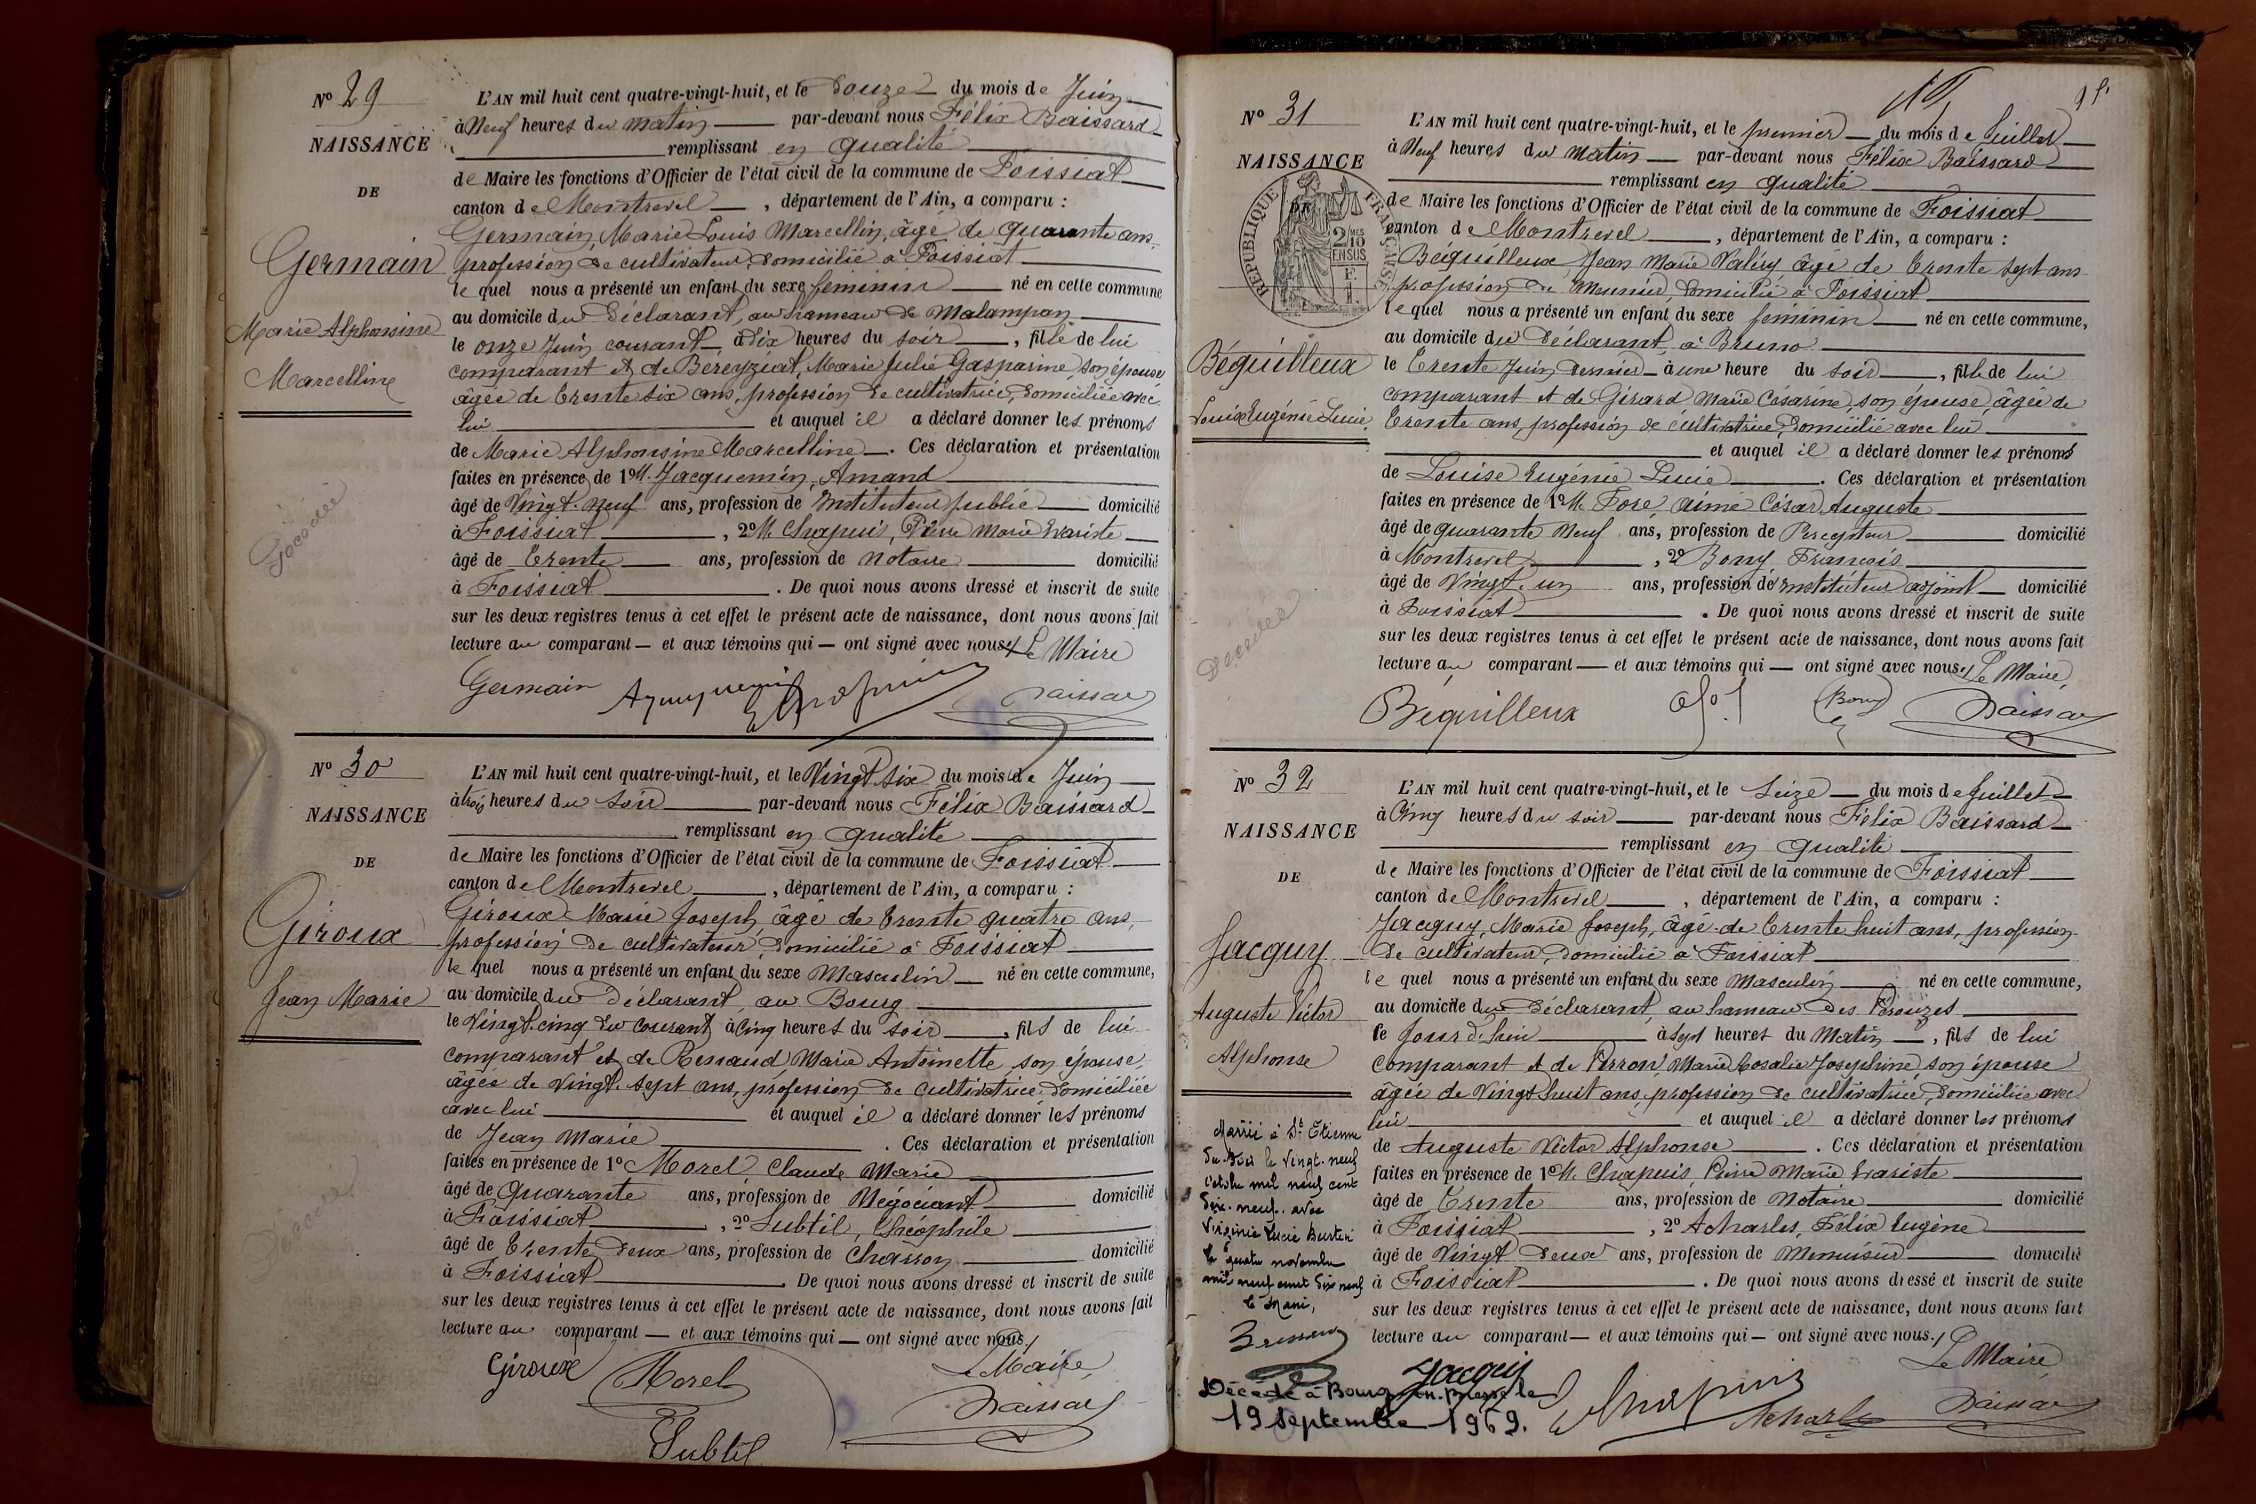 Nº 29
NAISSANCE
DE
Germain
Marie Alphonsine
Marcelline
Décédée
L'AN mil huit cent quatre-vingt-huit, et le Douze du mois de Juin
à Neuf heures du matin par-devant nous Félix Baissard
remplissant en qualité
de Maire les fonctions d'Officier de l'état civil de la commune de Foissiat
canton de Montrevel, département de l'Ain, a comparu :
Germain, Marie Louis Marcellin, âgé de quarante ans,
profession de cultivateur, domicilié à Foissiat
le quel nous a présenté un enfant du sexe féminin né en cette commune
au domicile du Déclarant, au hameau de Malampan
le onze Juin courant à Dix heures du soir, fille de lui
comparant et de Béreyziat, Marie Julie Gasparine, son épouse
âgée de trente six ans, profession de cultivatrice, domiciliée avec
lui et auquel il a déclaré donner les prénoms
de Marie Alphonsine Marcelline. Ces déclaration et présentation
faites en présence de 1º M. Jacquemin, Amand
âgé de Vingt-neuf ans, profession de Instituteur public domicilié
à Foissiat, 2º M. Chapuis, Pierre Marie Evariste
âgé de trente ans, profession de notaire domicilié
à Foissiat. De quoi nous avons dressé et inscrit de suite
sur les deux registres tenus à cet effet le présent acte de naissance, dont nous avons fait
lecture au comparant — et aux témoins qui — ont signé avec nous./ Le Maire
Germain Chapuis Baissard
Nº 30
NAISSANCE
DE
Giroux
Jean Marie
Décédé
L'AN mil huit cent quatre-vingt-huit, et le Vingt six du mois de Juin
à trois heures du soir par-devant nous Félix Baissard
remplissant en qualité
de Maire les fonctions d'Officier de l'état civil de la commune de Foissiat
canton de Montrevel, département de l'Ain, a comparu :
Giroux Marie Joseph, âgé de trente quatre ans,
profession de cultivateur, domicilié à Foissiat
le quel nous a présenté un enfant du sexe Masculin né en cette commune,
au domicile du Déclarant, au Bourg
le Vingt-cinq du courant à Cinq heures du soir, fils de lui
comparant et de Renaud, Marie Antoinette, son épouse,
âgée de Vingt-sept ans, profession de cultivatrice, domiciliée
avec lui et auquel il a déclaré donner les prénoms
de Jean Marie. Ces déclaration et présentation
faites en présence de 1º Morel, Claude Marie
âgé de quarante ans, profession de Négociant domicilié
à Foissiat, 2º Subtil, Théophile
âgé de trente deux ans, profession de Charron domicilié
à Foissiat. De quoi nous avons dressé et inscrit de suite
sur les deux registres tenus à cet effet le présent acte de naissance, dont nous avons fait
lecture au comparant — et aux témoins qui — ont signé avec nous./
Le Maire,
Giroux Morel Baissard
Subtil
Nº 31
NAISSANCE
DE
RÉPUBLIQUE FRANÇAISE
2/10 EN SUS
Béguilleux
Louise Eugénie Lucie
Décédée
L'AN mil huit cent quatre-vingt-huit, et le premier du mois de Juillet
à Neuf heures du matin par-devant nous Félix Baissard
remplissant en qualité
de Maire les fonctions d'Officier de l'état civil de la commune de Foissiat
canton de Montrevel, département de l'Ain, a comparu :
Béguilleux, Jean Marie Valéry âgé de trente sept ans
profession de Meunier, domicilié à Foissiat
le quel nous a présenté un enfant du sexe féminin né en cette commune,
au domicile du Déclarant, à Bruno
le trente Juin dernier à une heure du soir, fille de lui
comparant et de Girard Marie Césarine, son épouse, âgée de
trente ans, profession de cultivatrice, domiciliée avec lui
et auquel il a déclaré donner les prénoms
de Louise Eugénie Lucie. Ces déclaration et présentation
faites en présence de 1º M. aimé César Auguste
âgé de quarante neuf ans, profession de Percepteur domicilié
à Montrevel, 2º Bony François
âgé de Vingt-un ans, profession d'Instituteur adjoint domicilié
à Foissiat. De quoi nous avons dressé et inscrit de suite
sur les deux registres tenus à cet effet le présent acte de naissance, dont nous avons fait
lecture au comparant — et aux témoins qui — ont signé avec nous./ Le Maire,
Béguilleux Bony Baissard
Nº 32
NAISSANCE
DE
Jacquy
Auguste Victor
Alphonse
Marié à St Etienne
du Bois le vingt-neuf
octobre mil neuf cent
dix-neuf avec
Virginie Lucie
le quatre novembre
mil neuf cent dix neuf
le Maire,
Décédé à Bourg-en-Bresse le
19 septembre 1969.
L'AN mil huit cent quatre-vingt-huit, et le Seize du mois de Juillet
à Cinq heures du soir par-devant nous Félix Baissard
remplissant en qualité
de Maire les fonctions d'Officier de l'état civil de la commune de Foissiat
canton de Montrevel, département de l'Ain, a comparu :
Jacquy, Marie Joseph, âgé de trente huit ans, profession
de cultivateur, domicilié à Foissiat
le quel nous a présenté un enfant du sexe Masculin né en cette commune,
au domicile du Déclarant, au hameau des
ce jour d'hui à sept heures du Matin, fils de lui
comparant et de Perron, Marie Rosalie Joséphine, son épouse
âgée de Vingt huit ans, profession de cultivatrice, domiciliée avec
lui et auquel il a déclaré donner les prénoms
de Auguste Victor Alphonse. Ces déclaration et présentation
faites en présence de 1º M. Chapuis, Pierre Marie Evariste
âgé de trente ans, profession de notaire domicilié
à Foissiat, 2º Acharles, Félix Eugène
âgé de Vingt deux ans, profession de Menuisier domicilié
à Foissiat. De quoi nous avons dressé et inscrit de suite
sur les deux registres tenus à cet effet le présent acte de naissance, dont nous avons fait
lecture au comparant — et aux témoins qui — ont signé avec nous./
Le Maire,
Jacquy Chapuis Acharles Baissard